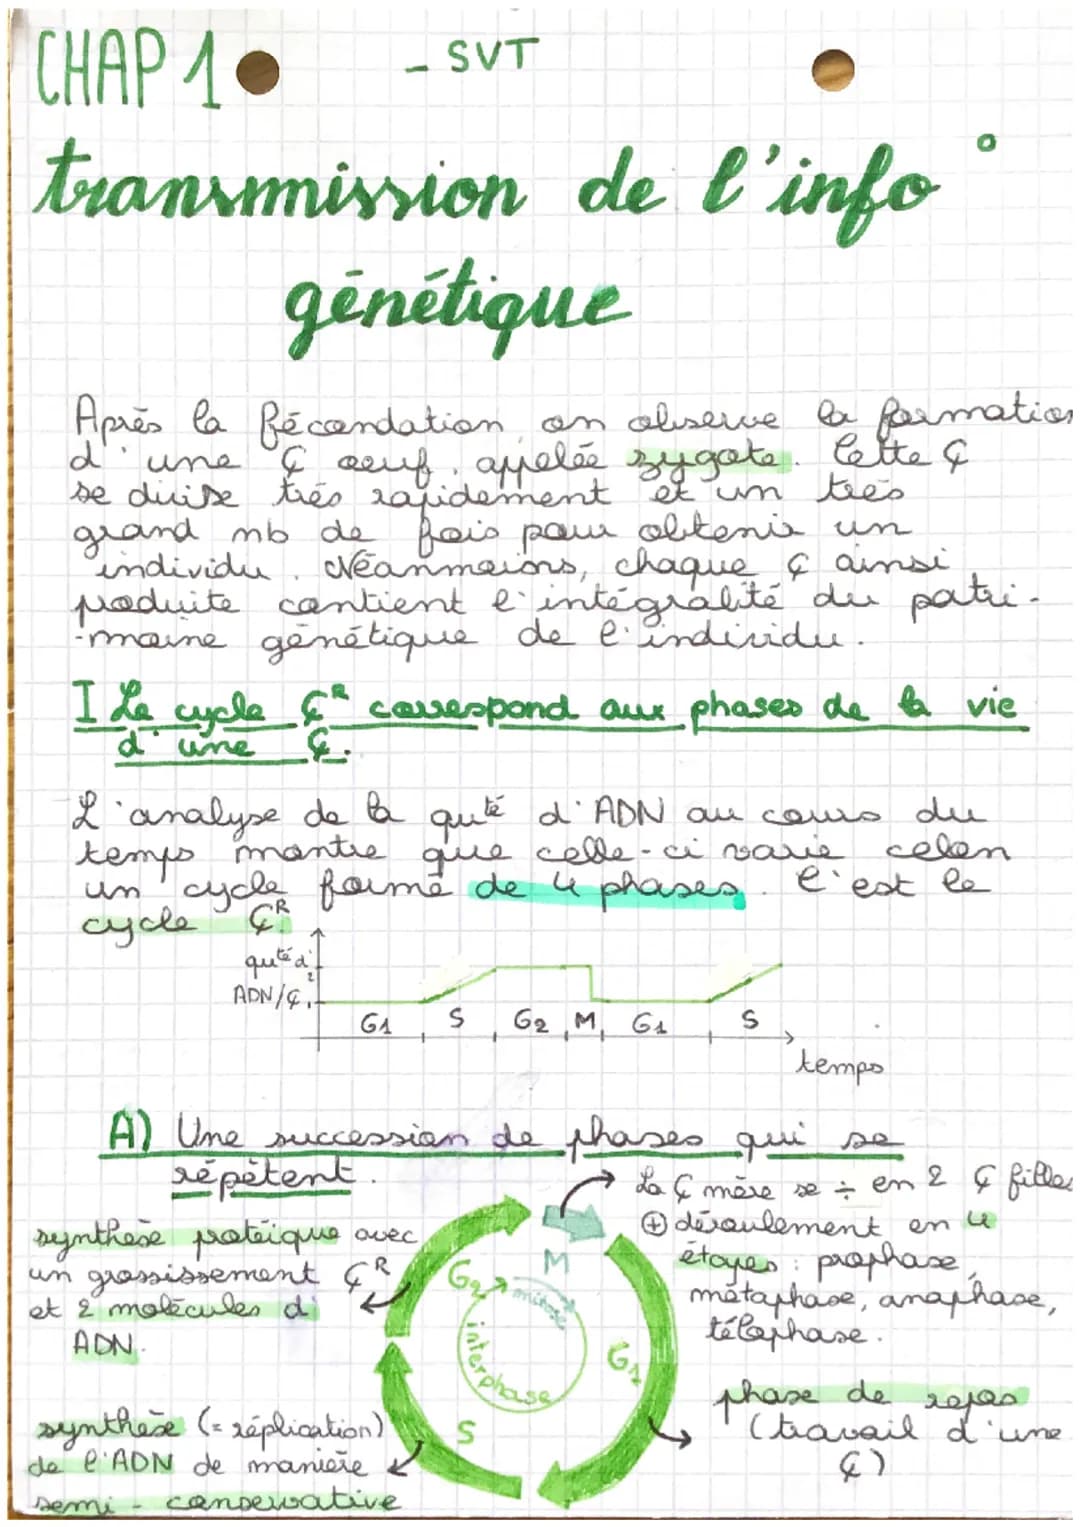 CHAP 1 - SVT
transmission de l'info°
génétique
Après la fécondation on observe la formation
d'une ₵ oeuf, appelée zygote. Cette ₵
se divise très rapidement et un très
grand nb de fois pour obtenir un
individu. Néanmoions, chaque ₵ ainsi
produite contient l'intégralité du patri-
-moine génétique de l'individu.
I Le cycle ₵ᴿ correspond aux phases de la vie
d'une ₵.
L'analyse de la quté d'ADN au cours du
temps montre que celle-ci varie celon
un cycle formé de 4 phases. C'est le
cycle ₵ᴿ.
quté d'
ADN/₵
2
1
G1 S G2 M G1 S
temps
A) Une succession de phases qui se
répètent.
La ₵ mère se ÷ en 2 ₵ filles
⊕ déroulement en 4
étapes : prophase,
métaphase, anaphase,
télophase.
synthèse protéique avec
un grossissement ₵ᴿ
et 2 molécules d'
ADN.
M
G2
mitose
interphase
G1
S
phase de repos
(travail d'une
₵)
synthèse (= réplication)
de l'ADN de manière
semi-conservative